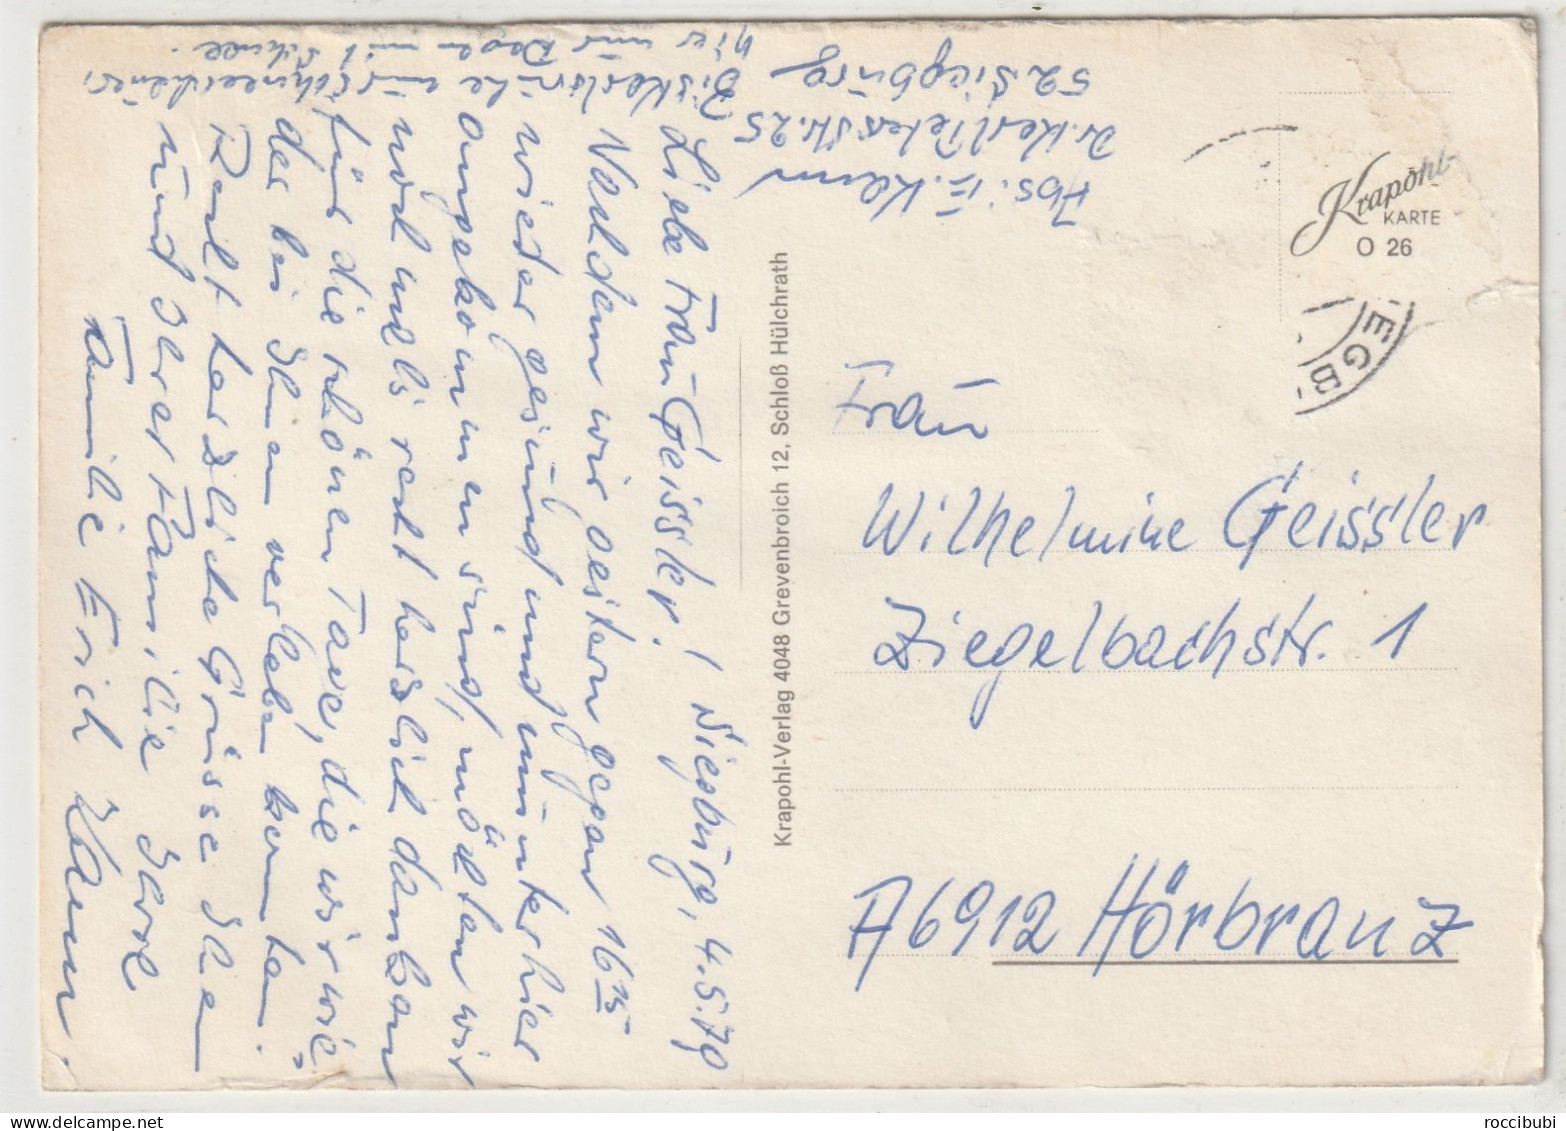 Abs: E. Kamm
Dr. Karl Peters Str. 25
52 Siegburg
Siegburg, 4.5.79
Liebe Frau Geissler!
Nachdem wir gestern gegen 16 15
wieder gesund und munter hier
angekommen sind, möchten wir
nochmals recht herzlich danken
für die schönen Tage, die wir wie-
der bei Ihnen verleben konnten.
Recht herzliche Grüsse Ihnen
und Ihrer Familie
Familie Erich Kamm.
hier nur Regen mit Schnee.
Krapohl-Verlag 4048 Grevenbroich 12, Schloß Hülchrath
Krapohl-
KARTE
O 26
EGB
Frau
Wilhelmine Geissler
Ziegelbachstr. 1
A 6912 Hörbranz
roccibubi